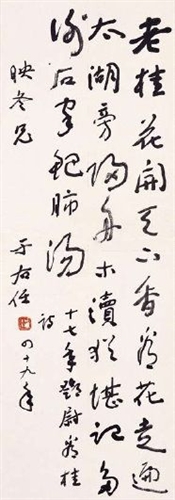 老桂花開天下香看花走遍
太湖旁歸舟木瀆猶堪記多
謝石家鲃肺湯
十七年鄧尉看桂
詩
映冬兄
于右任
四十九年